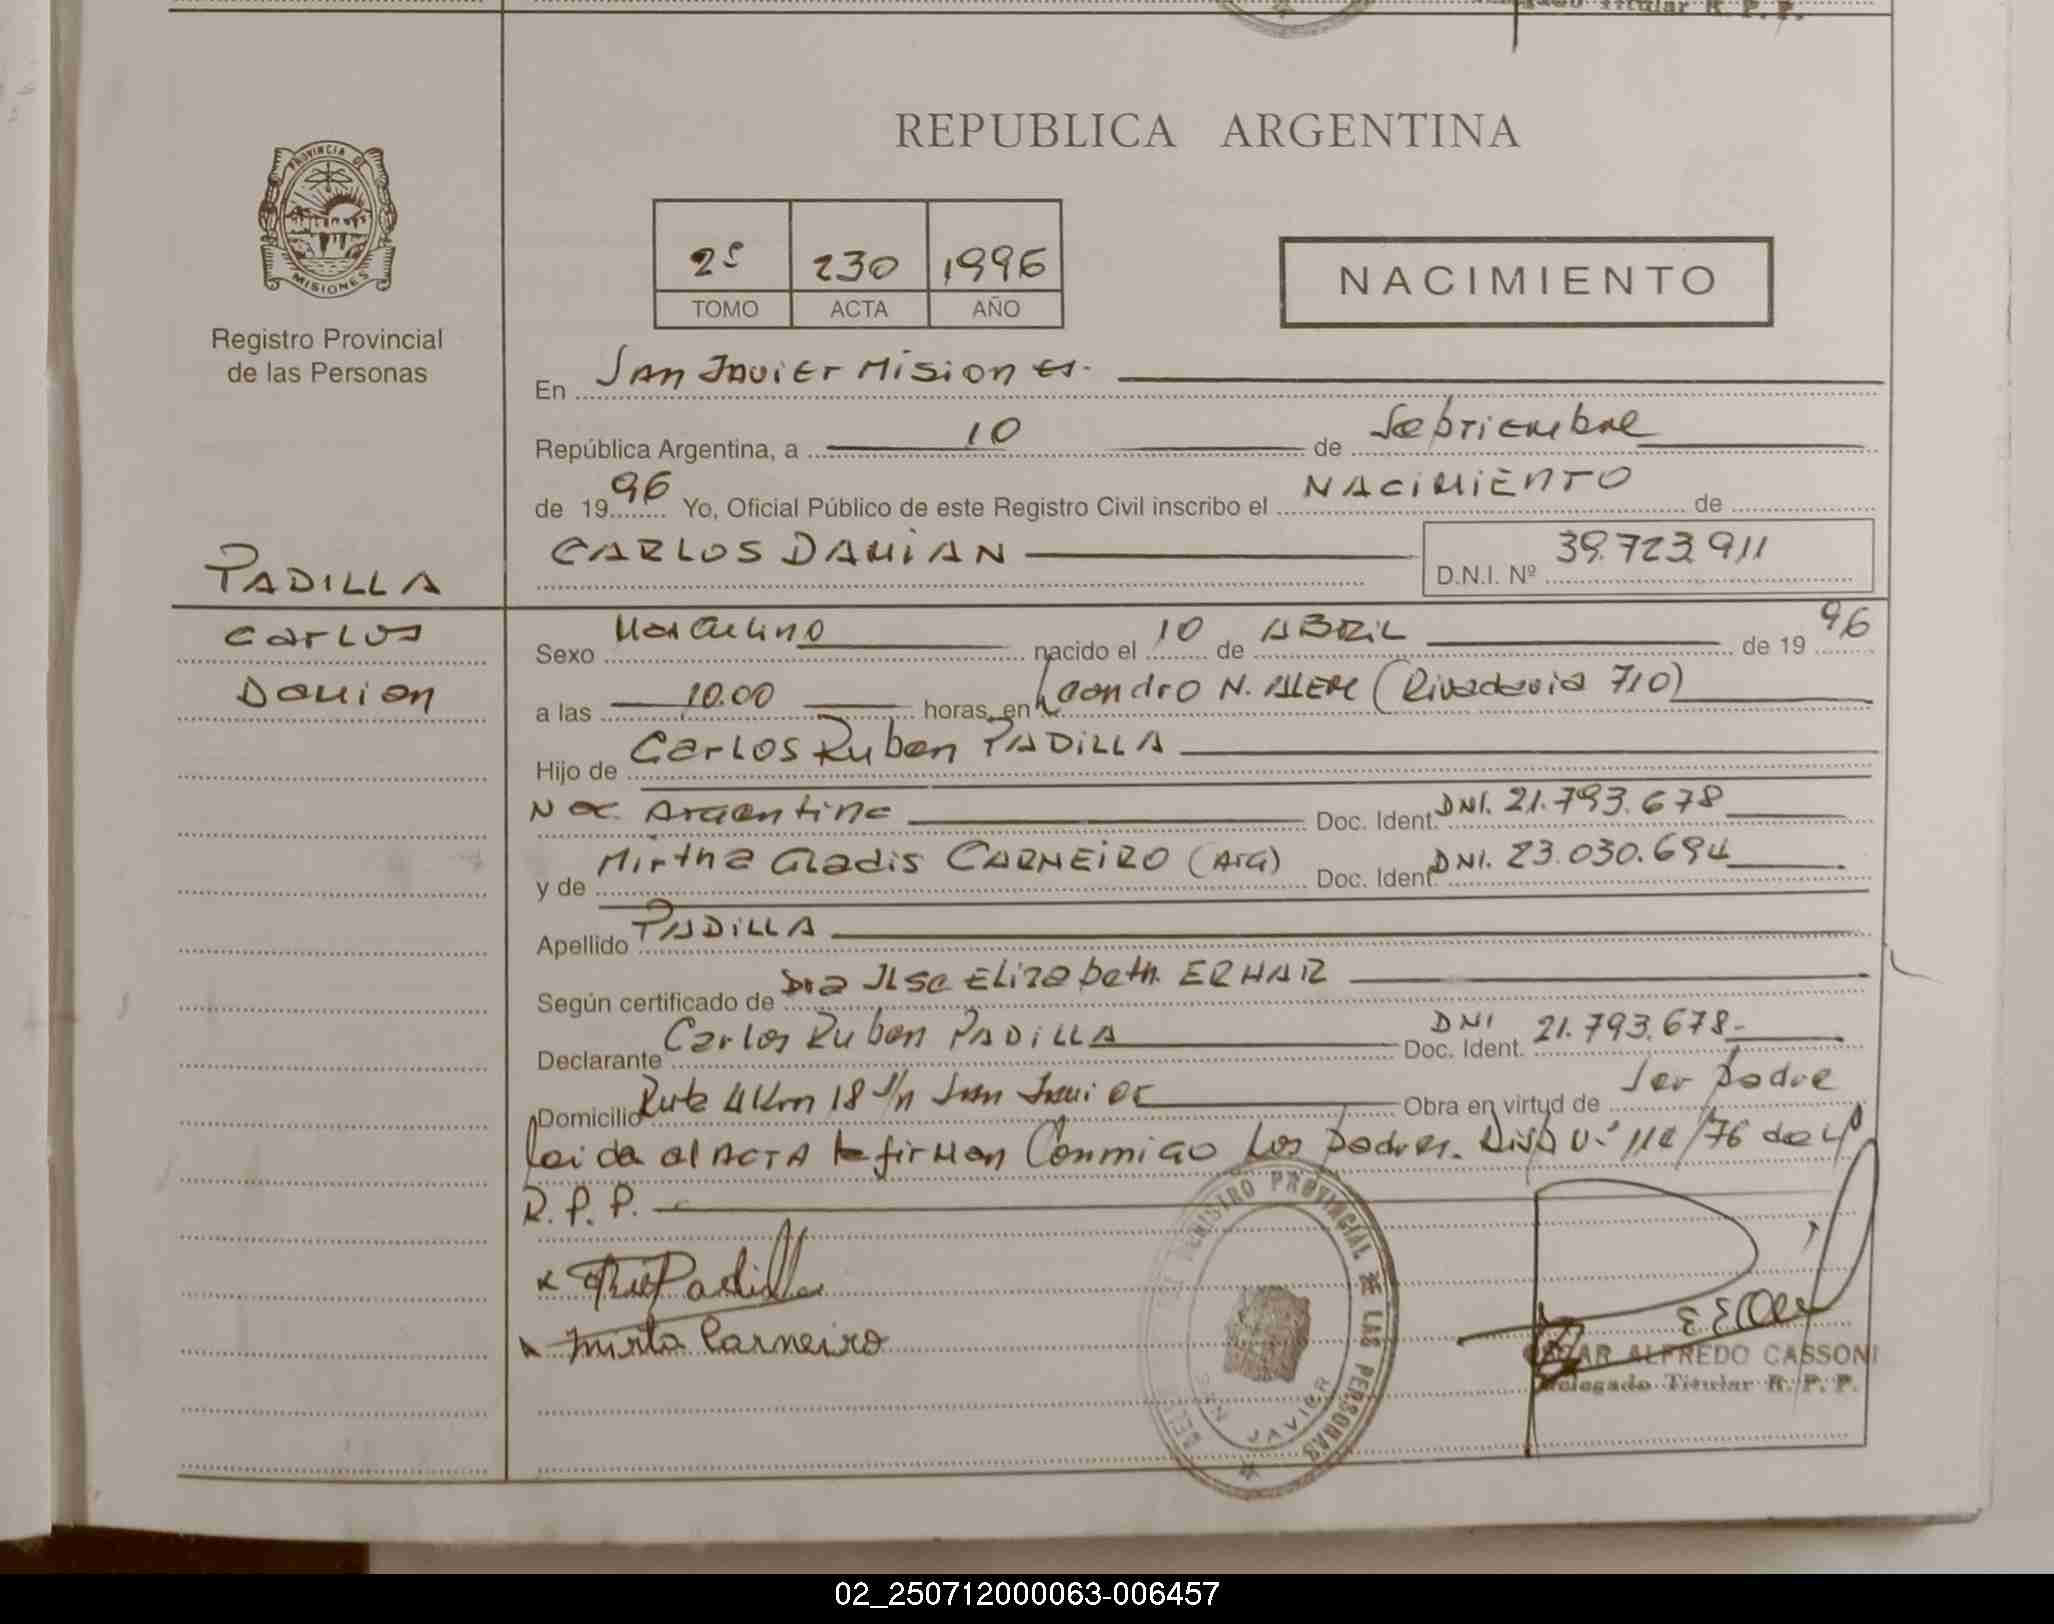 Titular R. P. P.
REPUBLICA ARGENTINA
PROVINCIA DE
MISIONES
Registro Provincial
de las Personas
2º 230 1996
TOMO ACTA AÑO
NACIMIENTO
En San Javier Misiones.
República Argentina, a 10 de Septiembre
de 1996 Yo, Oficial Público de este Registro Civil inscribo el NACIMIENTO de
CARLOS DAMIAN D.N.I. Nº 39.723.911
PADILLA
Carlos
Damian
Sexo Masculino nacido el 10 de ABRIL de 1996
a las 10.00 horas, en Leandro N. ALEM (Rivadavia 710)
Hijo de Carlos Ruben PADILLA
Nac. Argentina Doc. Ident. DNI. 21.793.678
y de Mirtha Gladis CARNEIRO (ArG) Doc. Ident. DNI. 23.030.694
Apellido PADILLA
Según certificado de Dra Ilse Elizabeth. ERHAR
Declarante Carlos Ruben PADILLA Doc. Ident. DNI 21.793.678-
Domicilio Ruta 4 Km 18 S/n San Javier Obra en virtud de Ser padre
Leida el ACTA la firman Conmigo Los padres. Disp. /76 del
R. P. P.
Padilla
Mirta Carneiro
REGISTRO PROVINCIAL DE LAS PERSONAS
SAN JAVIER
OSCAR ALFREDO CASSONI
Delegado Titular R. P. P.
02_250712000063-006457